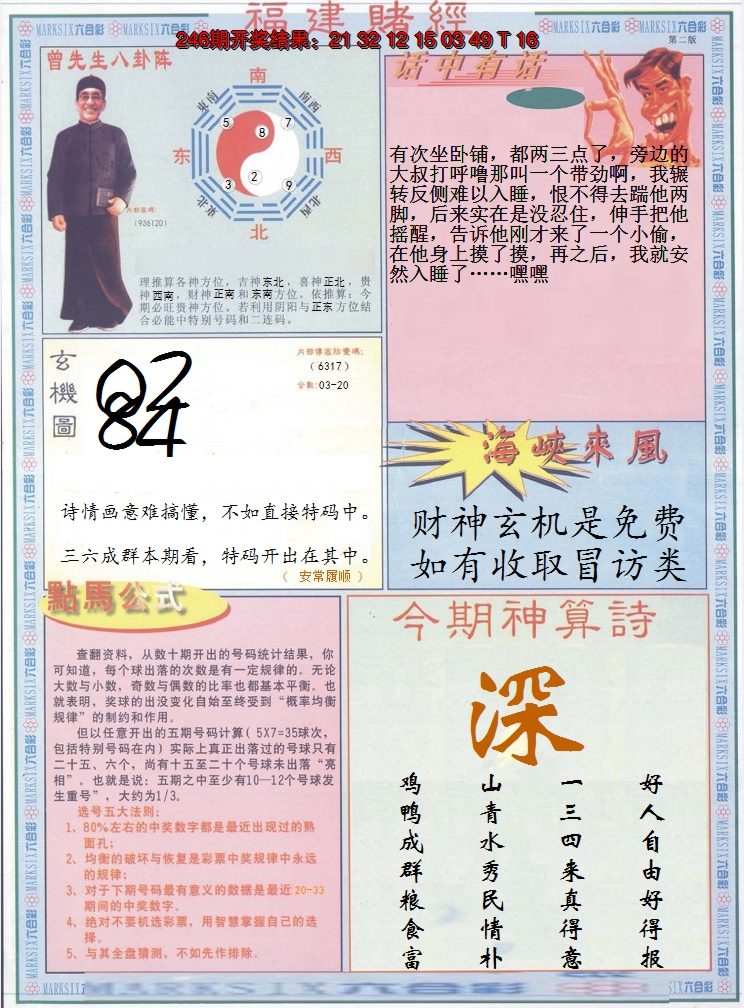 福建賭經
246期开奖结果：21 32 12 15 03 49 T 16
第二版
MARKSIX六合彩
曾先生八卦阵
南
东南
南西
东
西
东北
北西
北
5
8
7
3
2
9
内部密碼:
(936120)
理推算各神方位，吉神东北，喜神正北，贵
神西南，财神正南和东南方位。依推算：今
期必旺贵神方位。若利用阴阳与正东方位结
合必能中特别号码和二连码。
话中有话
有次坐卧铺，都两三点了，旁边的
大叔打呼噜那叫一个带劲啊，我辗
转反侧难以入睡，恨不得去踹他两
脚，后来实在是没忍住，伸手把他
摇醒，告诉他刚才来了一个小偷，
在他身上摸了摸，再之后，我就安
然入睡了……嘿嘿
玄機圖
84
内部傳密防變碼:
(6317)
合數:03-20
诗情画意难搞懂，不如直接特码中。
三六成群本期看，特码开出在其中。
（ 安常履顺 ）
海峽來風
财神玄机是免费
如有收取冒访类
點馬公式
查翻资料，从数十期开出的号码统计结果，你
可知道，每个球出落的次数是有一定规律的。无论
大数与小数，奇数与偶数的比率也都基本平衡。也
就表明，奖球的出没变化自始至终受到“概率均衡
规律”的制约和作用。
但以任意开出的五期号码计算( 5X7=35球次，
包括特别号码在内) 实际上真正出落过的号球只有
二十五、六个，尚有十五至二十个号球未出落“亮
相”。也就是说：五期之中至少有10—12个号球发
生重号”，大约为1/3。
选号五大法则:
1、80%左右的中奖数字都是最近出现过的熟
面孔；
2、均衡的破坏与恢复是彩票中奖规律中永远
的规律；
3、对于下期号码最有意义的数据是最近20-33
期间的中奖数字。
4、绝对不要机选彩票，用智慧掌握自己的选
择。
5、与其全盘猜测，不如先作排除。
今期神算詩
深
好人自由好得报
一三四来真得意
山青水秀民情朴
鸡鸭成群粮食富